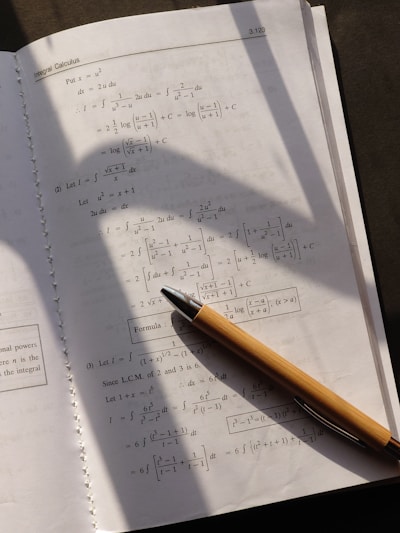 Integral Calculus 3.120
Put x = u²
dx = 2u du
∴ I = ∫ 1/(u³ − u) 2u du = ∫ 2/(u² − 1) du
= 2 1/2 log [(u − 1)/(u + 1)] + C = log [(u − 1)/(u + 1)] + C
= log [(√x − 1)/(√x + 1)] + C
Let I = ∫ √(x + 1)/x dx
Let u² = x + 1
2u du = dx
∴ I = ∫ u/(u² − 1) 2u du = ∫ 2u²/(u² − 1) du
= 2 ∫ [(u² − 1)/(u² − 1) + 1/(u² − 1)] du = 2 ∫ [1 + 1/(u² − 1)] du
= 2 [∫ du + ∫ 1/(u² − 1) du] = 2 [u + 1/2 log [(u − 1)/(u + 1)]] + C
= 2 √x + [(√(x + 1) − 1)/(√(x + 1) + 1)] + C
Formula log [(x − a)/(x + a)]; (x > a)
Let I = ∫ 1/((1 + x)^(1/2) − (1 + x)
Since L.C.M. of 2 and 3 is 6.
Let 1 + x = t⁶ ∴ dx = 6t⁵
I = ∫ 6t⁵/(t³ − t²) dt = ∫ 6t⁵/(t² (t − 1)) dt = 6 ∫
= 6 ∫ (t³ − 1 + 1)/(t − 1) dt t³ − 1³ = (t − 1)(t²
= 6 ∫ [(t³ − 1)/(t − 1) + 1/(t − 1)] dt = 6 ∫ [(t² + t + 1) + 1/(t − 1)] dt
powers
n is the
the integral